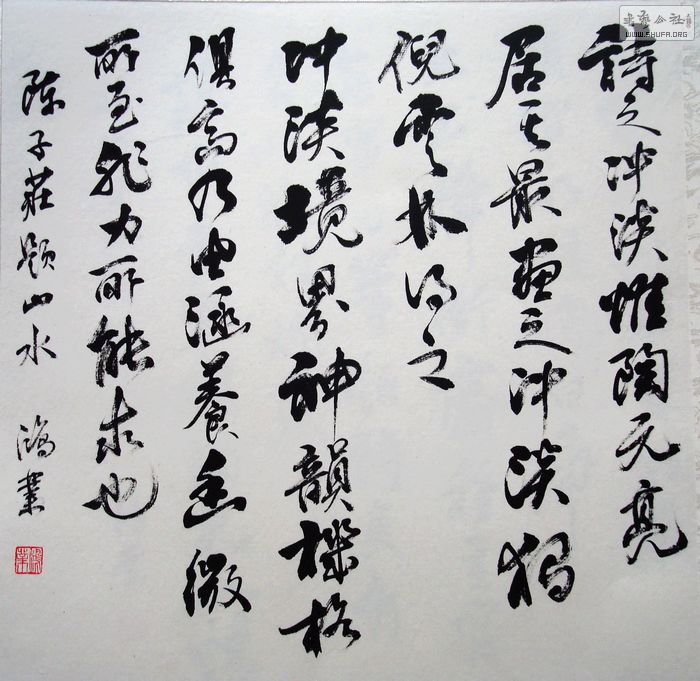 詩之冲淡惟陶元亮
居其最畫之冲淡独
倪雲林得之
冲淡境界神韻機格
俱高乃由涵養幽微
所至非力所能求也
陈子莊题山水 鴻業
书艺公社
WWW.SHUFA.ORG